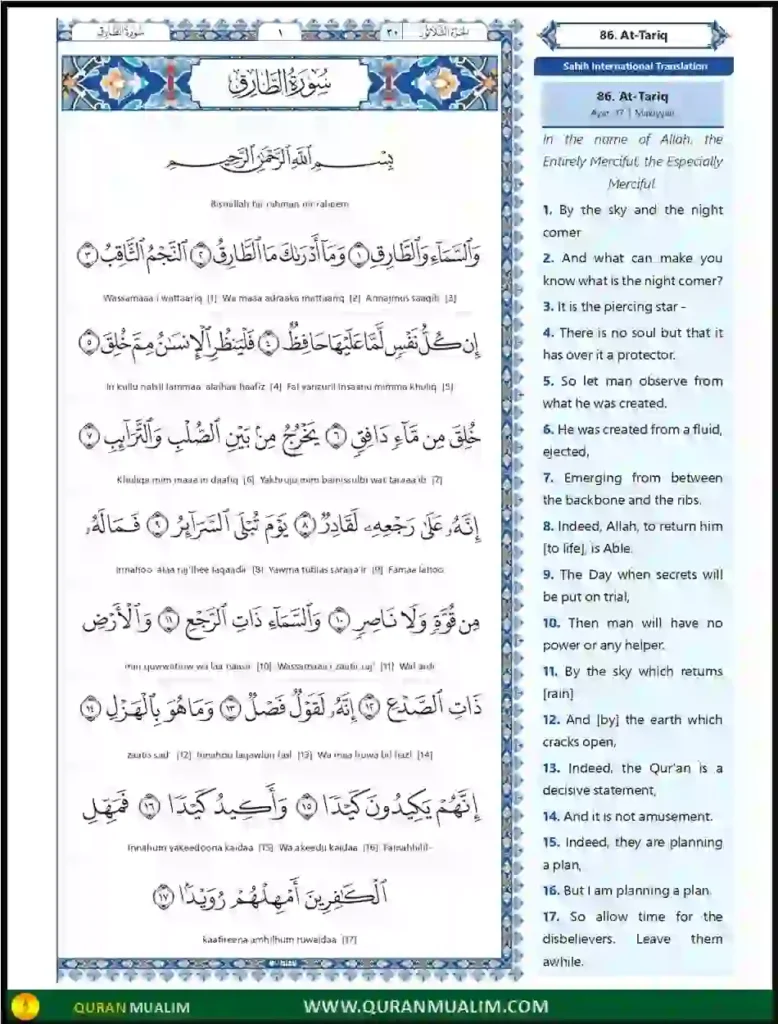 سورة الطارق
١
٣٠
الجزء الثلاثون
سُورَةُ الطَّارِقِ
بِسْمِ اللَّهِ الرَّحْمَٰنِ الرَّحِيمِ
Bismillah hir rahman nir raheem
وَالسَّمَاءِ وَالطَّارِقِ ١ وَمَا أَدْرَىٰكَ مَا الطَّارِقُ ٢ النَّجْمُ الثَّاقِبُ ٣
Wassamaaa'i wattaariq [1] Wa maaa adraaka mattaariq [2] Annajmus saaqib [3]
إِن كُلُّ نَفْسٍ لَّمَّا عَلَيْهَا حَافِظٌ ٤ فَلْيَنظُرِ الْإِنسَٰنُ مِمَّ خُلِقَ ٥
In kullu nafsil lammaa 'alaihaa haafiz [4] Fal yanzuril insaanu mimma khuliq [5]
خُلِقَ مِن مَّاءٍ دَافِقٍ ٦ يَخْرُجُ مِنۢ بَيْنِ الصُّلْبِ وَالتَّرَائِبِ ٧
Khuliqa mim maaa'in daafiq [6] Yakhruju mim bainissulbi wat taraaa'ib [7]
إِنَّهُۥ عَلَىٰ رَجْعِهِۦ لَقَادِرٌ ٨ يَوْمَ تُبْلَى السَّرَائِرُ ٩ فَمَا لَهُۥ
Innahoo 'alaa raj'ihee laqaadir [8] Yawma tublas saraaa'ir [9] Famaa lahoo
مِن قُوَّةٍ وَلَا نَاصِرٍ ١٠ وَالسَّمَاءِ ذَاتِ الرَّجْعِ ١١ وَالْأَرْضِ
min quwwatinw wa laa naasir [10] Wassamaaa'i zaatir raj' [11] Wal ardi
ذَاتِ الصَّدْعِ ١٢ إِنَّهُۥ لَقَوْلٌ فَصْلٌ ١٣ وَمَا هُوَ بِالْهَزْلِ ١٤
zaatis sad' [12] Innahou laqawlun fasl [13] Wa maa huwa bil hazl [14]
إِنَّهُمْ يَكِيدُونَ كَيْدًا ١٥ وَأَكِيدُ كَيْدًا ١٦ فَمَهِّلِ
Innahum yakeedoona kaidaa [15] Wa akeedu kaidaa [16] Famahhilil-
الْكَٰفِرِينَ أَمْهِلْهُمْ رُوَيْدًۢا ١٧
kaafireena amhilhum ruwaidaa [17]
86. At-Tariq
Sahih International Translation
86. At-Tariq
Ayat 17 | Makkiyyah
In the name of Allah, the
Entirely Merciful, the Especially
Merciful
1. By the sky and the night
comer
2. And what can make you
know what is the night comer?
3. It is the piercing star -
4. There is no soul but that it
has over it a protector.
5. So let man observe from
what he was created.
6. He was created from a fluid,
ejected,
7. Emerging from between
the backbone and the ribs.
8. Indeed, Allah, to return him
[to life], is Able.
9. The Day when secrets will
be put on trial,
10. Then man will have no
power or any helper.
11. By the sky which returns
[rain]
12. And [by] the earth which
cracks open,
13. Indeed, the Qur'an is a
decisive statement,
14. And it is not amusement.
15. Indeed, they are planning
a plan,
16. But I am planning a plan.
17. So allow time for the
disbelievers. Leave them
awhile.
QURAN MUALIM
WWW.QURANMUALIM.COM